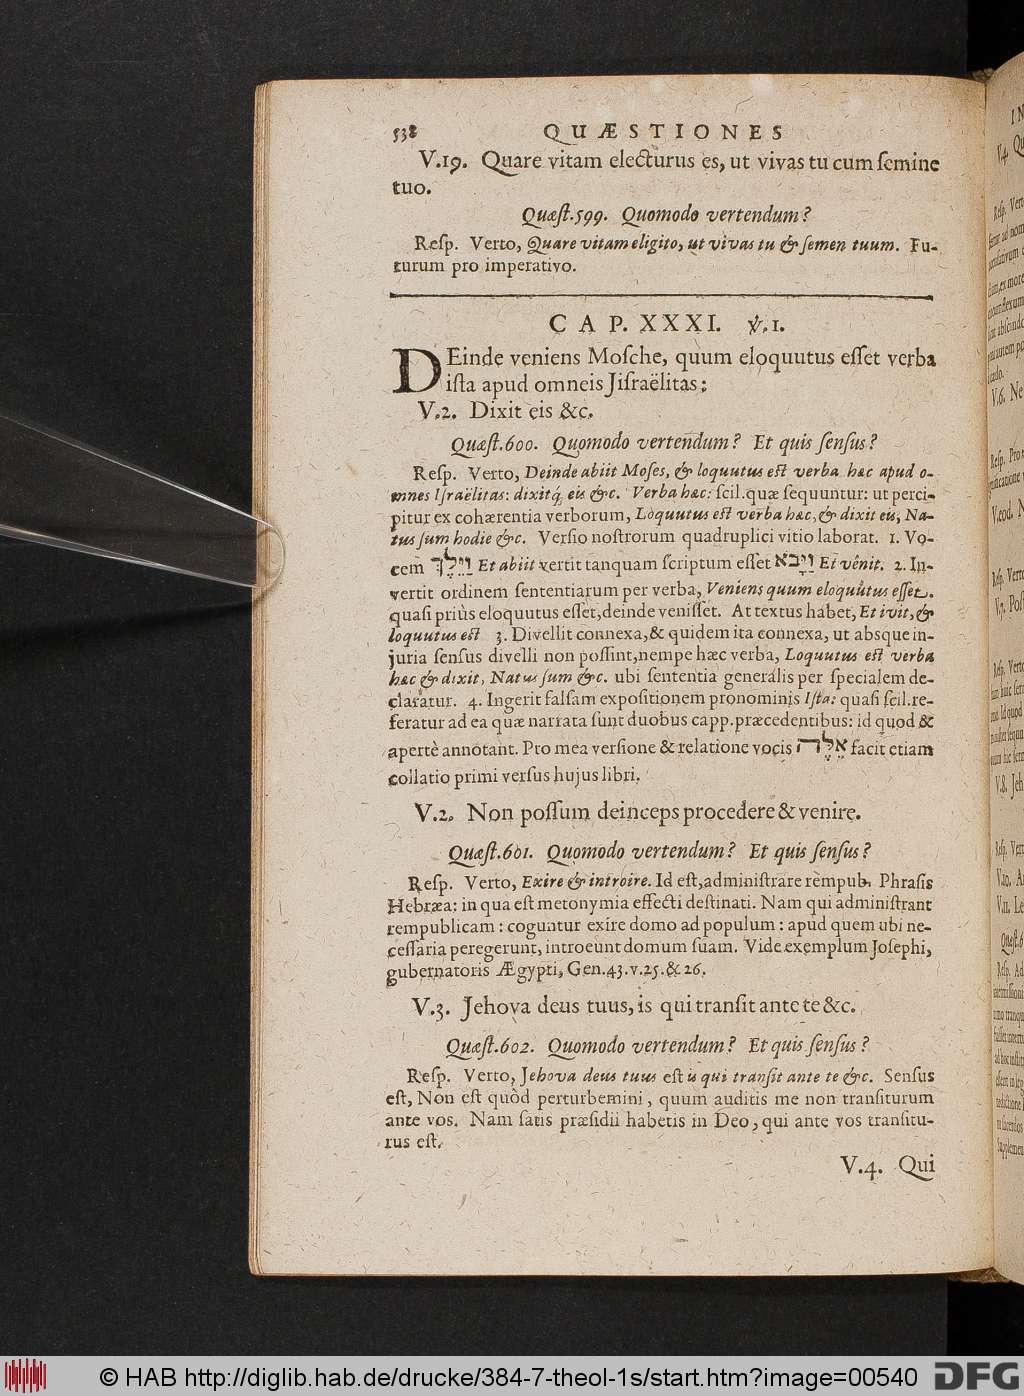 538 QUÆSTIONES
V.19. Quare vitam electurus es, ut vivas tu cum ſemine
tuo.
Quæſt.599. Quomodo vertendum?
Reſp. Verto, Quare vitam eligito, ut vivas tu & ſemen tuum. Fu-
turum pro imperativo.
CAP. XXXI. V.1.
DEinde veniens Moſche, quum eloquutus eſſet verba
iſta apud omneis Jiſraëlitas:
V.2. Dixit eis &c.
Quæſt.600. Quomodo vertendum? Et quis ſenſus?
Reſp. Verto, Deinde abiit Moſes, & loquutus eſt verba hæc apud o-
mnes Iſraëlitas: dixitq́ eis &c. Verba hæc: ſcil. quæ ſequuntur: ut perci-
pitur ex cohærentia verborum, Loquutus eſt verba hæc, & dixit eis, Na-
tus ſum hodie &c. Verſio noſtrorum quadruplici vitio laborat. 1. Vo-
cem וַיֵּלֶךְ Et abiit vertit tanquam ſcriptum eſſet וַיָּבֹא Et vênit. 2. In-
vertit ordinem ſententiarum per verba, Veniens quum eloquûtus eſſet.
quaſi priùs eloquutus eſſet, deinde veniſſet. At textus habet, Et ivit, &
loquutus eſt 3. Divellit connexa, & quidem ita connexa, ut absque in-
juria ſenſus divelli non poſſint, nempe hæc verba, Loquutus eſt verba
hæc & dixit, Natus ſum &c. ubi ſententia generalis per ſpecialem de-
claratur. 4. Ingerit falſam expoſitionem pronominis Iſta: quaſi ſcil. re-
feratur ad ea quæ narrata ſunt duobus capp. præcedentibus: id quod &
apertè annotant. Pro mea verſione & relatione vocis אֵלֶּה facit etiam
collatio primi verſus hujus libri.
V.2. Non poſſum deinceps procedere & venire.
Quæſt.601. Quomodo vertendum? Et quis ſenſus?
Reſp. Verto, Exire & introire. Id eſt, adminiſtrare rempub. Phraſis
Hebræa: in qua eſt metonymia effecti deſtinati. Nam qui adminiſtrant
rempublicam: coguntur exire domo ad populum: apud quem ubi ne-
ceſſaria peregerunt, introeunt domum ſuam. Vide exemplum Joſephi,
gubernatoris Ægypti, Gen.43.v.25.&26.
V.3. Jehova deus tuus, is qui tranſit ante te &c.
Quæſt.602. Quomodo vertendum? Et quis ſenſus?
Reſp. Verto, Jehova deus tuus eſt is qui tranſit ante te &c. Senſus
eſt, Non eſt quòd perturbemini, quum auditis me non tranſiturum
ante vos. Nam ſatis præſidii habetis in Deo, qui ante vos tranſitu-
rus eſt.
V.4. Qui
© HAB http://diglib.hab.de/drucke/384-7-theol-1s/start.htm?image=00540
DFG